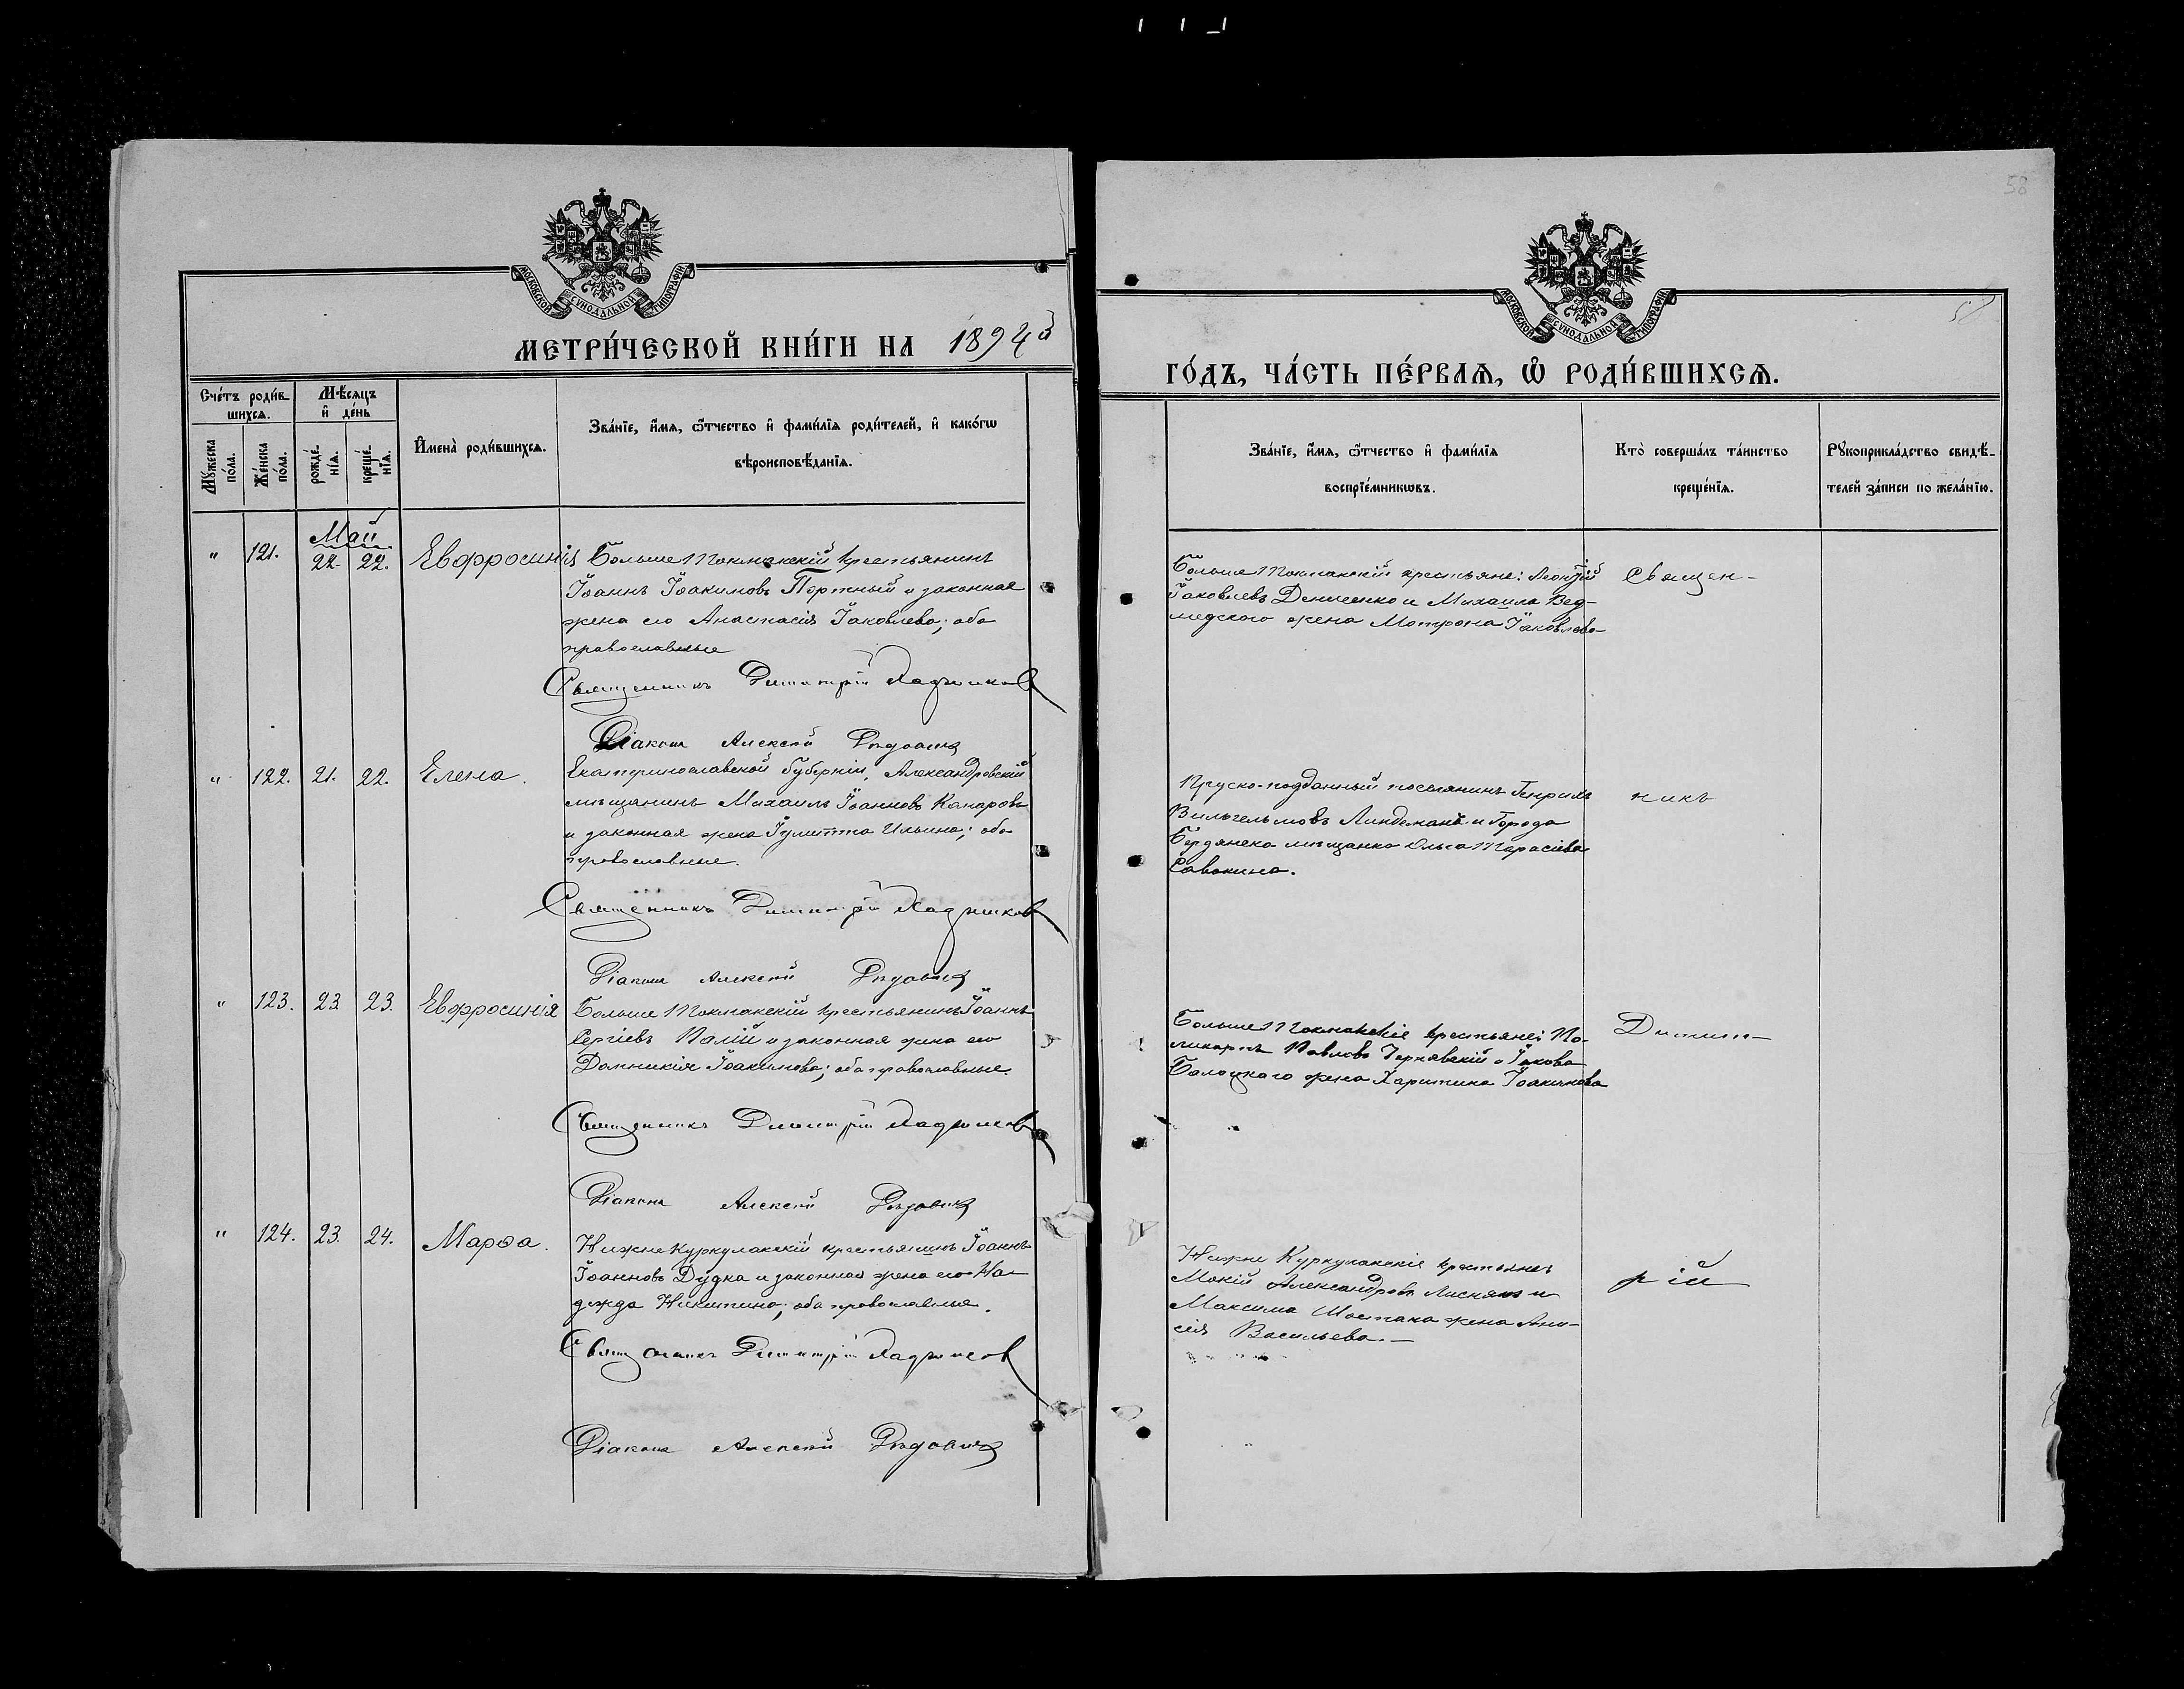 58
57
МОСКОВСКОЙ СѴНОДАЛЬНОЙ ТИПОГРАФІИ
МЕТРИ́ЧЕСКОЙ КНИ́ГИ НА 1894й
Сче́тъ роди́в-
шихсѧ.
Мѣ́сѧцъ
и҆ де́нь
Мꙋ́жеска
по́ла.
Же́нска
по́ла.
рожде́-
нїѧ.
креще́-
нїѧ.
И҆мена̀ роди́вшихсѧ.
Зва́нїе, и҆́мѧ, ѻ҆́тчество и҆ фами́лїѧ роди́телей, и҆ како́гѡ
вѣроисповѣ́данїѧ.
Май
" 121. 22. 22. Евфросинія
Больше Токмакскій крестьянинъ
Іоаннъ Іоакимовъ Портный и законная
жена его Анастасія Іаковлева; оба
православные
Священникъ Димитрій Ладжиков
Діаконъ Алексѣй
" 122. 21. 22. Елена.
Екатеринославской Губерніи, Александровскій
мѣщанинъ Михаилъ Іоанновъ Комаровъ
и законная жена Іулитта Ильина; оба
православные.
Священникъ Димитрій Ладжиков
Діаконъ Алексѣй
" 123. 23 23. Евфросинія
Больше Токмакскій крестьянинъ Іоаннъ
Сергіевъ Палій и законная жена его
Домникія Іоакимова; оба православные.
Священникъ Димитрій Ладжиков
Діаконъ Алексѣй
" 124. 23. 24. Марѳа.
Нижне Куркулакскій крестьянинъ Іоаннъ
Іоанновъ Дудка и законная жена его На-
дежда Никитина; оба православные.
Священникъ Димитрій Ладжиков
Діаконъ Алексѣй
МОСКОВСКОЙ СѴНОДАЛЬНОЙ ТИПОГРАФІИ
ГО́ДЪ, ЧА́СТЬ ПЕ́РВАѦ, Ѡ҆ РОДИ́ВШИХСѦ.
Зва́нїе, и҆́мѧ, ѻ҆́тчество и҆ фами́лїѧ
воспрїе́мникѡвъ.
Кто̀ соверша́лъ та́инство
креще́нїѧ.
Рꙋкоприкла́дство свидѣ́-
телей за́писи по жела́нїю.
Больше Токмакскій крестьяне: Леонтій
Іаковлевъ Денисенко и Михаила Вед-
медского жена Мотрона Іаковлева
Священ-
Пруско-подданный поселянинъ Генрихъ
Вильгельмовъ Линдеманъ и Города
Бердянска мѣщанка Ольга Тарасіева
Савокина.
никъ
Больше Токмакскіе крестьяне: По-
ликарпъ Павловъ Чернявскій и Іакова
Болоцкаго жена Харитина Іоакимова
Димит-
Нижне Куркулакскіе крестьяне:
Мокій Александровъ Лисняк и
Максима Шостака жена Ани-
сія Васильева.-
рій